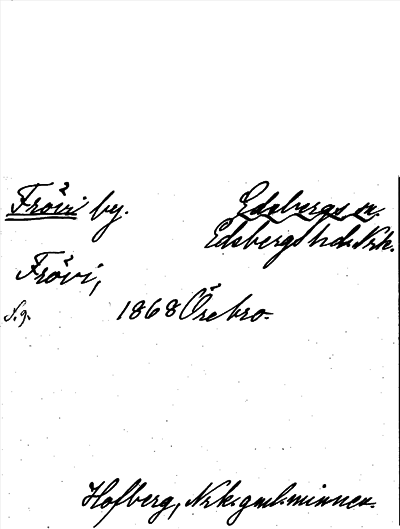 Frövi by. Edsbergs sn.
Edsbergs hd. Nrk.
Frövi,
S. 9. 1868 Örebro.
Hofberg, Nrk. gml. minnen.